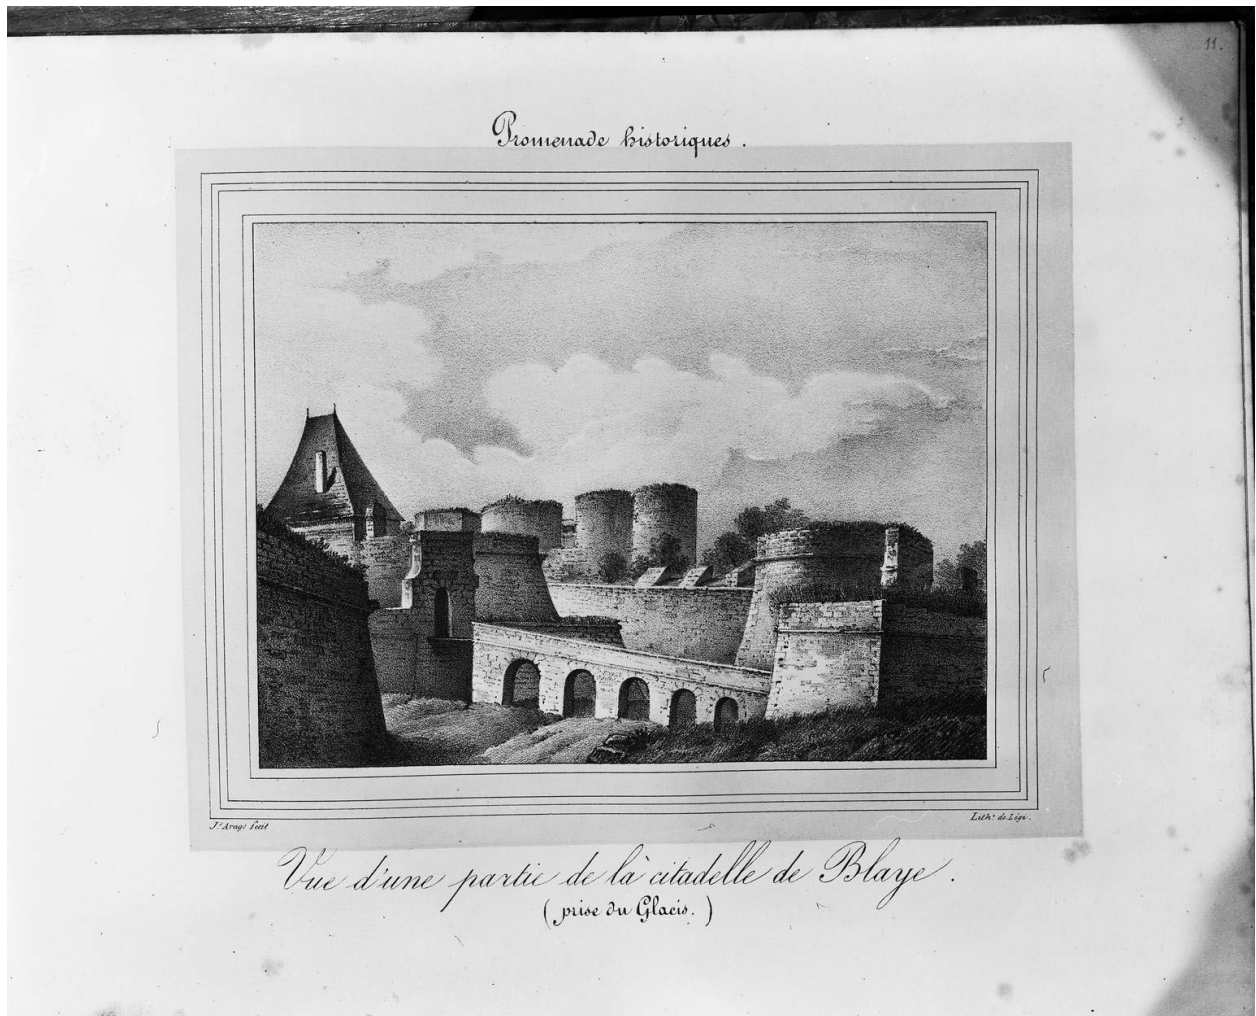 11.
Promenade historiques.
J. Arago fecit
Lith. de Légé.
Vue d'une partie de là citadelle de Blaye.
(prise du Glacis.)